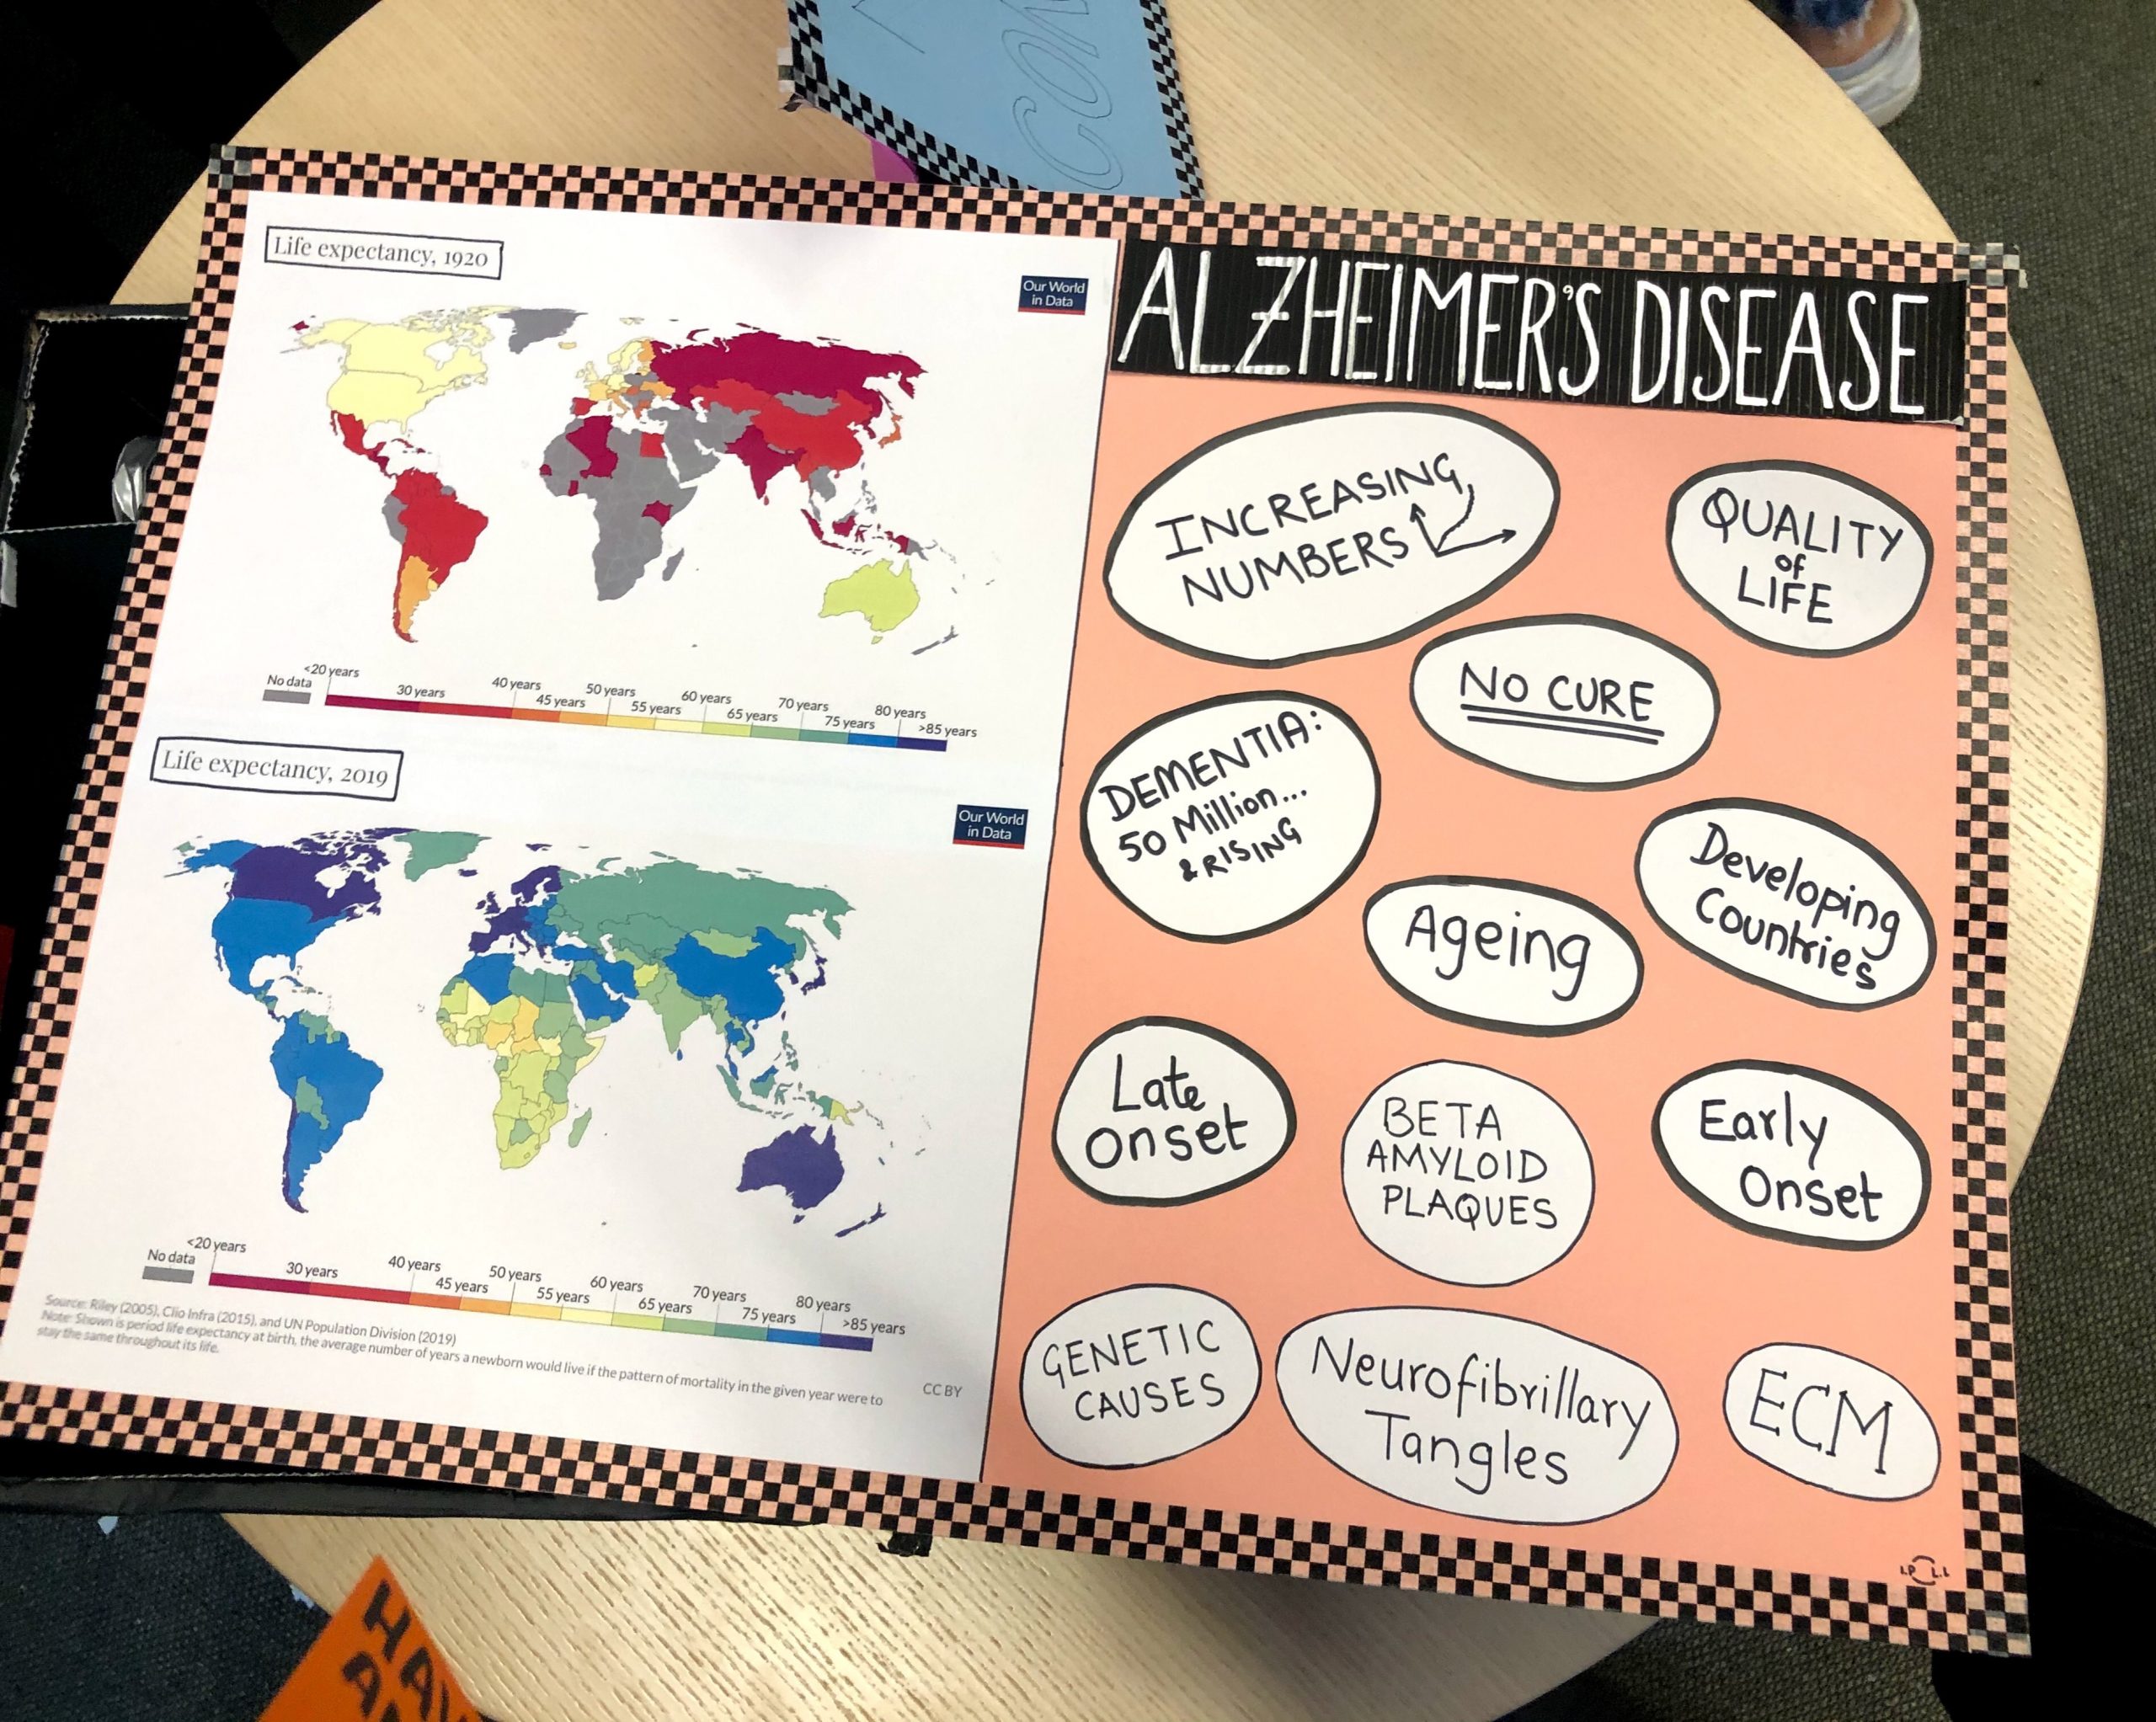 CON
Life expectancy, 1920
Our World
in Data
No data
<20 years
30 years
40 years
45 years
50 years
55 years
60 years
65 years
70 years
75 years
80 years
>85 years
Life expectancy, 2019
Our World
in Data
No data
<20 years
30 years
40 years
45 years
50 years
55 years
60 years
65 years
70 years
75 years
80 years
>85 years
Source: Riley (2005), Clio Infra (2015), and UN Population Division (2019)
Note: Shown is period life expectancy at birth, the average number of years a newborn would live if the pattern of mortality in the given year were to
stay the same throughout its life.
CC BY
ALZHEIMER'S DISEASE
INCREASING
NUMBERS
QUALITY
of
LIFE
NO CURE
DEMENTIA:
50 Million...
& RISING
Developing
Countries
Ageing
Late
onset
BETA
AMYLOID
PLAQUES
Early
Onset
GENETIC
CAUSES
Neurofibrillary
Tangles
ECM
HA
A